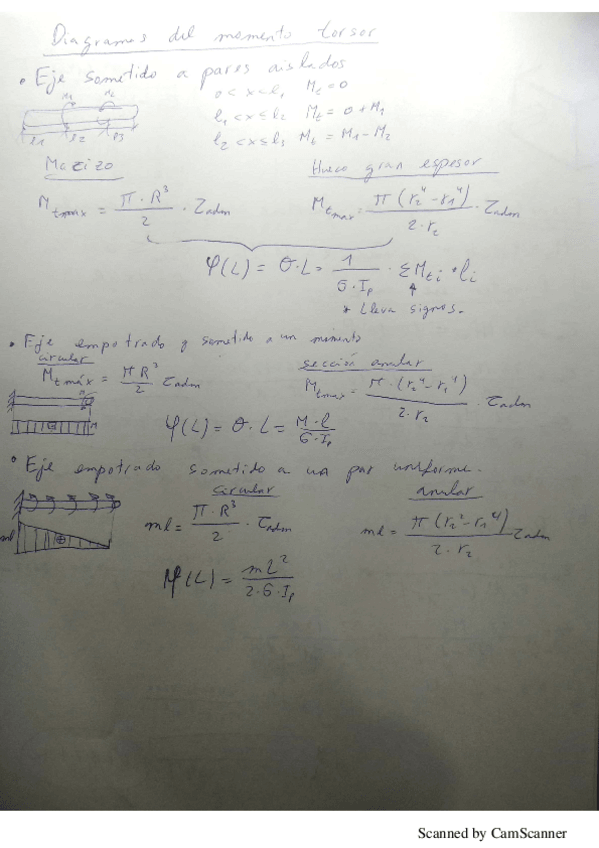 Diagramas del momento torsor
• Eje sometido a pares aislados
0 < x < l₁ M_t = 0
l₁ < x ≤ l₂ M_t = 0 + M₁
l₂ < x ≤ l₃ M_t = M₁ - M₂
M₁ M₂
l₁ l₂ l₃
Macizo
M_tmax = π · R³ / 2 · τ_adm
Hueco gran espesor
M_tmax = π (r₂⁴ - r₁⁴) / 2 · r₂ · τ_adm
φ(L) = θ · L = 1 / G · I_p · Σ M_ti · l_i
* Lleva signos.
• Eje empotrado y sometido a un momento
circular
M_t máx = π R³ / 2 τ_adm
sección anular
M_tmax = π · (r₂⁴ - r₁⁴) / 2 · r₂ · τ_adm
M
φ(L) = θ · L = M · l / G · I_p
• Eje empotrado sometido a un par uniforme.
circular
ml = π · R³ / 2 · τ_adm
anular
ml = π (r₂⁴ - r₁⁴) / 2 · r₂ τ_adm
ml
φ(L) = mL² / 2 · G · I_p
Scanned by CamScanner